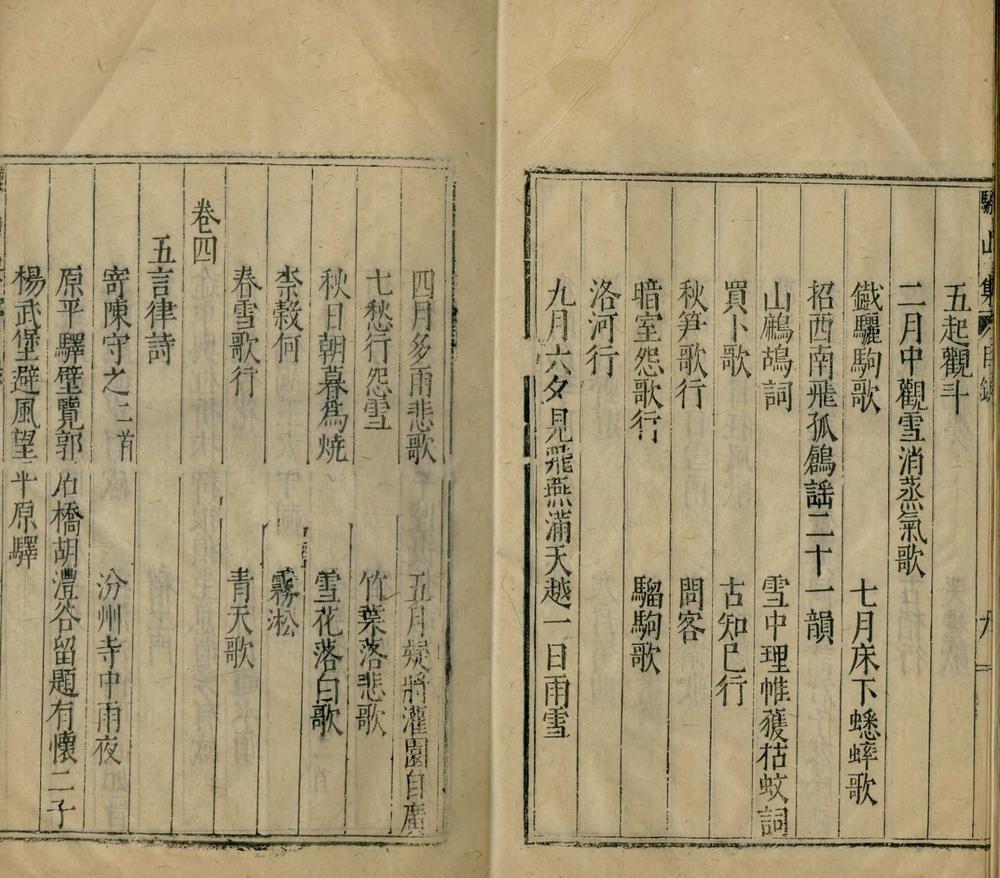 五起觀斗
二月中觀雪消蒸氣歌
鐵驪駒歌 七月床下蟋蟀歌
招西南飛孤鶬謡二十一韻
山鷓鴣詞 雪中理帷獲枯蚊詞
買卜歌 古知已行
秋笋歌行 問客
暗室怨歌行 騮駒歌
洛河行
九月六夕見飛燕滿天越一日雨雪
四月多雨悲歌 五月熯將灌園自廣
七愁行怨雪 竹葉落悲歌
秋日朝暮爲燒 雪花落白歌
柰穀何 霧淞
春雪歌行 青天歌
卷四
五言律詩
寄陳守之二首 汾州寺中雨夜
原平驛壁覽郭石橋胡澧谷留題有懷二子
楊武堡避風望平原驛